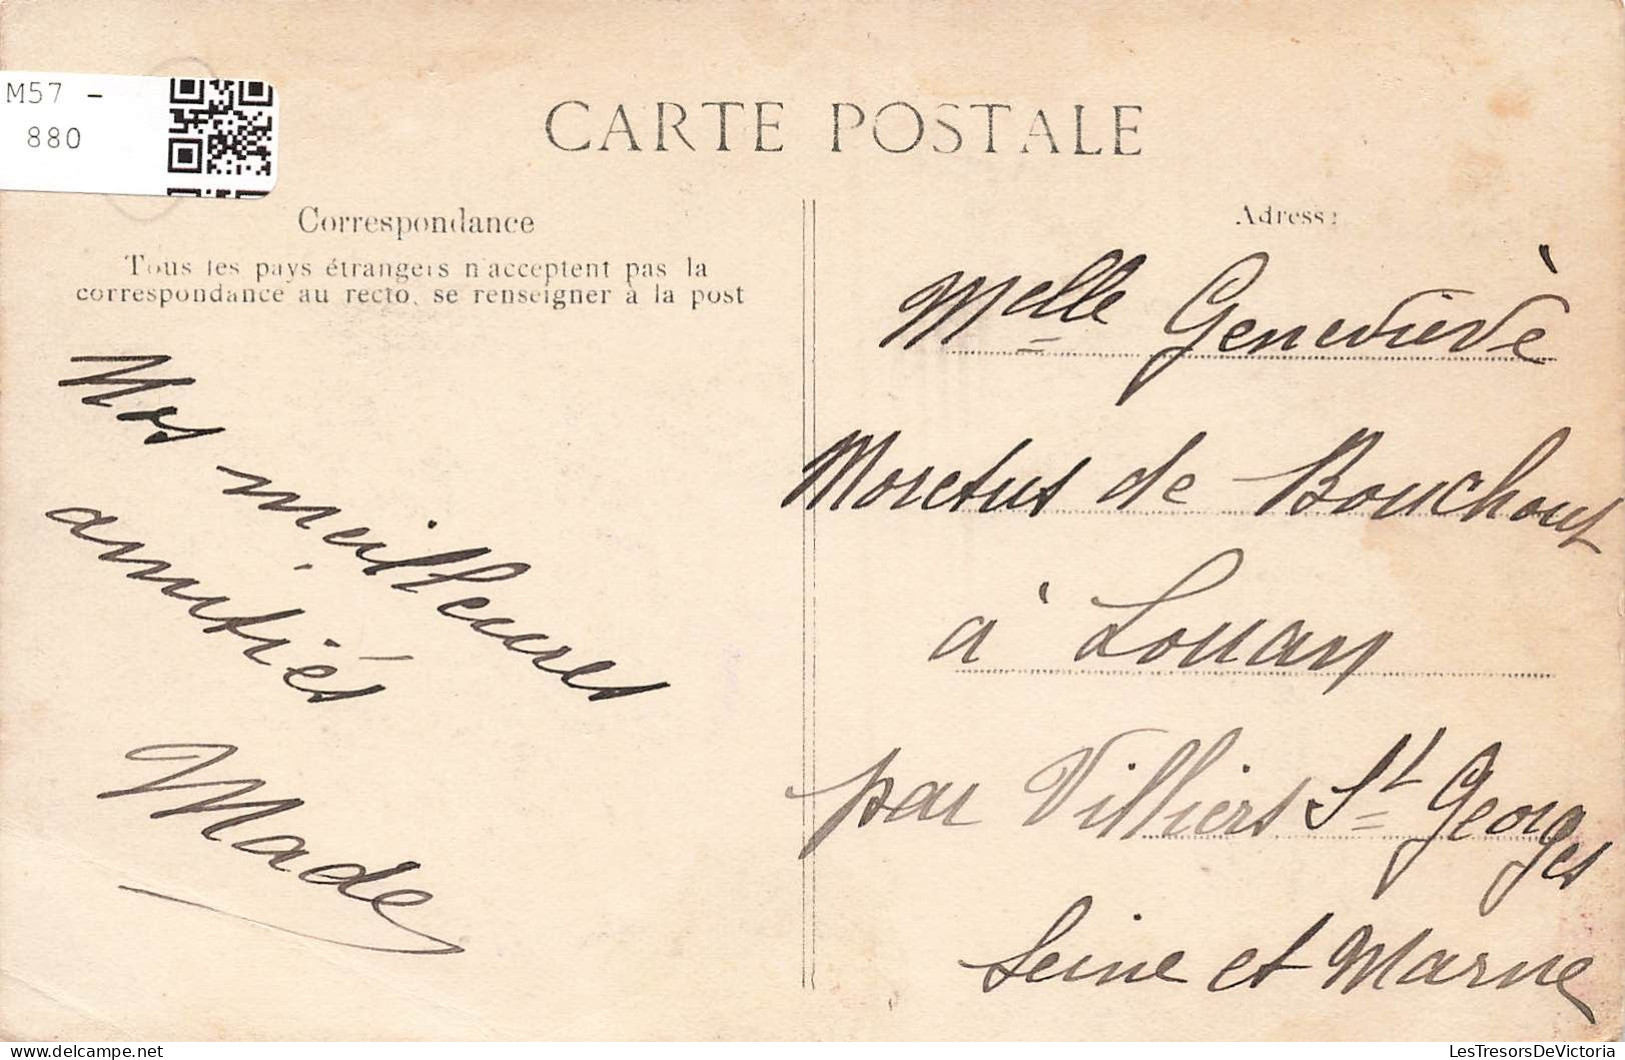 M57 -
880
CARTE POSTALE
Correspondance
Tous les pays étrangers n'acceptent pas la
correspondance au recto, se renseigner à la post
Mes meilleures
amitiés
Made
Adress:
Melle Genevievè
Moretus de Bouchout
à Louan
par Villiers St Georges
Seine et Marne
LesTresorsDeVictoria